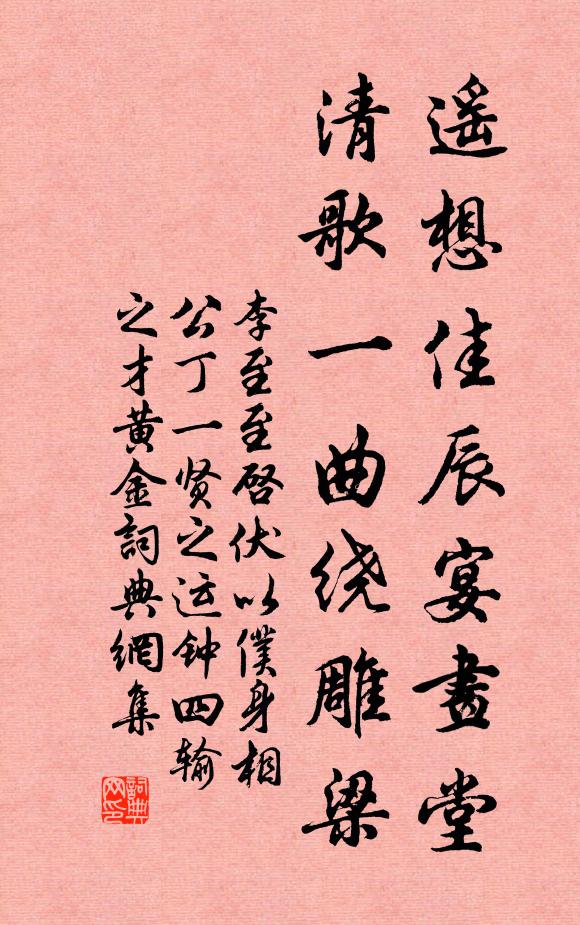 遥想佳辰宴畫堂
清歌一曲绕雕梁
李至至啓伏以僕身相
公丁一贤之运钟四输
之才黄金詞典網集
詞典